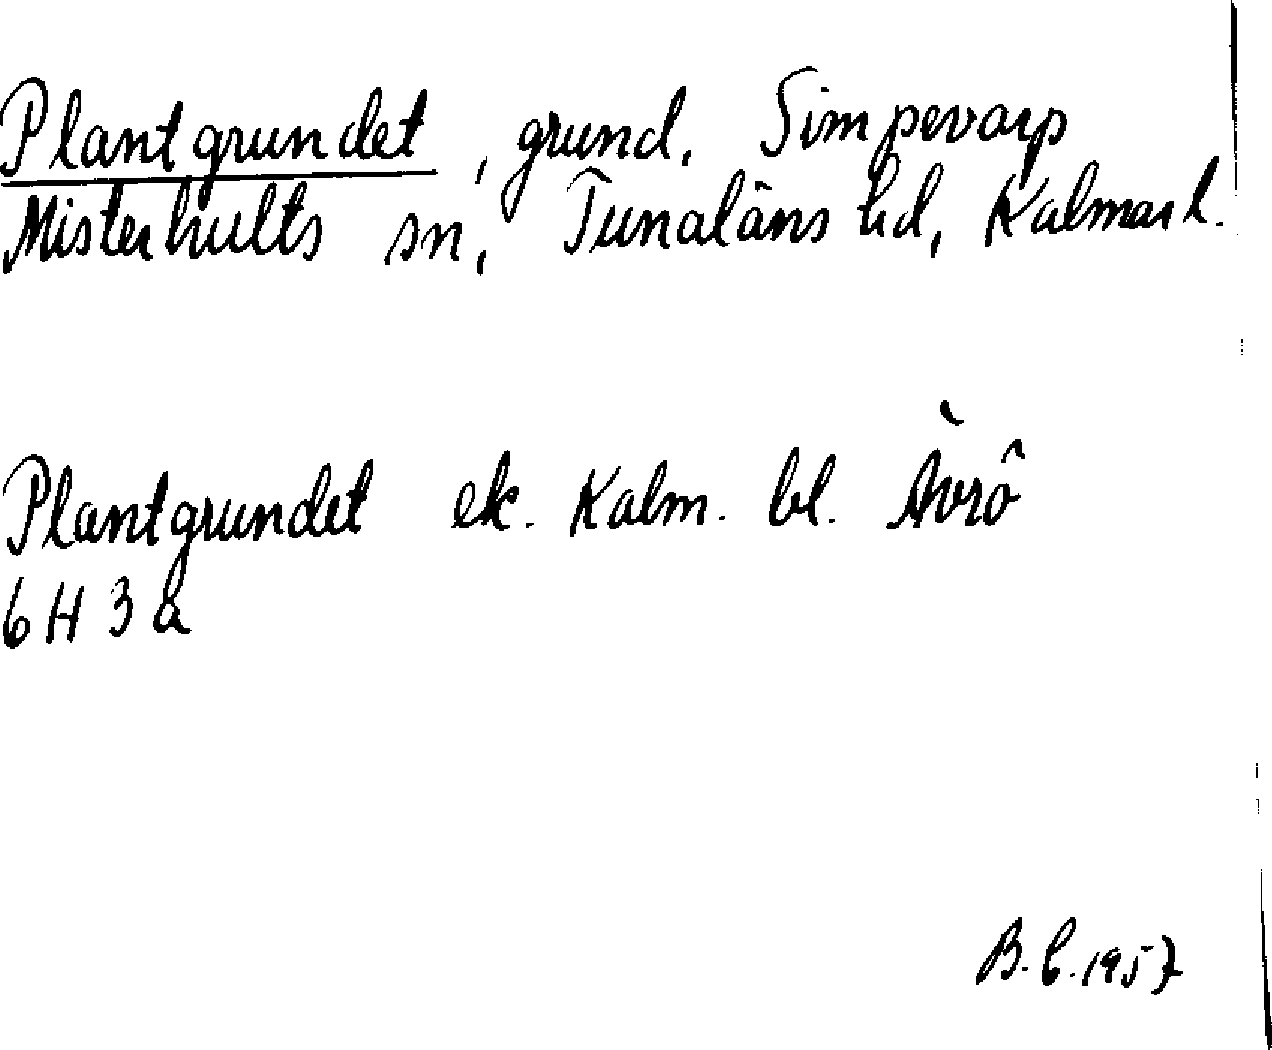 Plantgrundet, grund, Simpevarp
Misterhults sn, Tunaläns hd, Kalmar l.
Plantgrundet ek. Kalm. bl. Ävrö
6H 3a
B.C. 1957